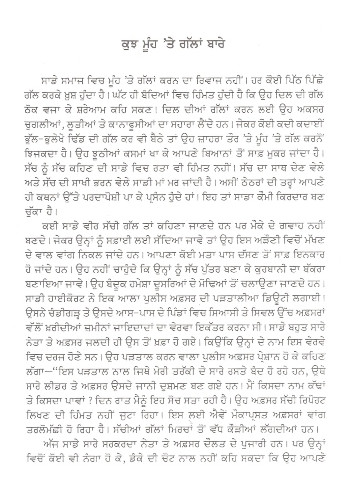 ਕੁਝ ਮੂੰਹ 'ਤੇ ਗੱਲਾਂ ਬਾਰੇ
ਸਾਡੇ ਸਮਾਜ ਵਿਚ ਮੂੰਹ 'ਤੇ ਗੱਲਾਂ ਕਰਨ ਦਾ ਰਿਵਾਜ ਨਹੀਂ। ਹਰ ਕੋਈ ਪਿੱਠ ਪਿੱਛੇ
ਗੱਲ ਕਰਕੇ ਖ਼ੁਸ਼ ਹੁੰਦਾ ਹੈ। ਘੱਟ ਹੀ ਬੰਦਿਆਂ ਵਿਚ ਹਿੰਮਤ ਹੁੰਦੀ ਹੈ ਕਿ ਉਹ ਦਿਲ ਦੀ ਗੱਲ
ਠੋਕ ਵਜਾ ਕੇ ਸ਼ਰੇਆਮ ਕਹਿ ਸਕਣ। ਦਿਲ ਦੀਆਂ ਗੱਲਾਂ ਕਰਨ ਲਈ ਉਹ ਅਕਸਰ
ਚੁਗਲੀਆਂ, ਲੂਤੀਆਂ ਤੇ ਕਾਨਾਫੂਸੀਆਂ ਦਾ ਸਹਾਰਾ ਲੈਂਦੇ ਹਨ। ਜੇਕਰ ਕੋਈ ਕਦੀ ਕਦਾਈਂ
ਭੁੱਲ-ਭੁਲੇਖੇ ਢਿੱਡ ਦੀ ਗੱਲ ਕਰ ਵੀ ਬੈਠੇ ਤਾਂ ਉਹ ਜ਼ਾਹਰਾ ਤੌਰ 'ਤੇ ਮੂੰਹ 'ਤੇ ਗੱਲ ਕਰਨੋਂ
ਝਿਜਕਦਾ ਹੈ। ਉਹ ਝੂਠੀਆਂ ਕਸਮਾਂ ਖਾ ਕੇ ਆਪਣੇ ਬਿਆਨਾਂ ਤੋਂ ਸਾਫ਼ ਮੁਕਰ ਜਾਂਦਾ ਹੈ।
ਸੱਚ ਨੂੰ ਸੱਚ ਕਹਿਣ ਦੀ ਸਾਡੇ ਵਿਚ ਰਤਾ ਵੀ ਹਿੰਮਤ ਨਹੀਂ। ਸੱਚ ਦਾ ਸਾਥ ਦੇਣ ਵੇਲੇ
ਅਤੇ ਸੱਚ ਦੀ ਸਾਖੀ ਭਰਨ ਵੇਲੇ ਸਾਡੀ ਮਾਂ ਮਰ ਜਾਂਦੀ ਹੈ। ਅਸੀਂ ਠੋਠਰਾਂ ਦੀ ਤਰ੍ਹਾਂ ਆਪਣੇ
ਹੀ ਕਥਨਾਂ ਉੱਤੇ ਪਰਦਾਪੋਸ਼ੀ ਪਾ ਕੇ ਪ੍ਰਸੰਨ ਹੁੰਦੇ ਹਾਂ। ਇਹ ਤਾਂ ਸਾਡਾ ਕੌਮੀ ਕਿਰਦਾਰ ਬਣ
ਚੁੱਕਾ ਹੈ।
ਕਈ ਸਾਡੇ ਵੀਰ ਸੱਚੀ ਗੱਲ ਤਾਂ ਕਹਿਣਾ ਜਾਣਦੇ ਹਨ ਪਰ ਮੌਕੇ ਦੇ ਗਵਾਹ ਨਹੀਂ
ਬਣਦੇ। ਜੇਕਰ ਉਨ੍ਹਾਂ ਨੂੰ ਸਫ਼ਾਈ ਲਈ ਸੱਦਿਆ ਜਾਵੇ ਤਾਂ ਉਹ ਇਸ ਅੜੌਣੀ ਵਿਚੋਂ ਮੱਖਣ
ਦੇ ਵਾਲ ਵਾਂਗ ਨਿਕਲ ਜਾਂਦੇ ਹਨ। ਆਪਣਾ ਕੋਈ ਮਤਾ ਪਾਸ ਦੱਸਣ ਤੋਂ ਸਾਫ਼ ਇਨਕਾਰ
ਹੋ ਜਾਂਦੇ ਹਨ। ਉਹ ਨਹੀਂ ਚਾਹੁੰਦੇ ਕਿ ਉਨ੍ਹਾਂ ਨੂੰ ਸੱਚ ਪੁੱਤਰ ਬਣਾ ਕੇ ਕੁਰਬਾਨੀ ਦਾ ਬੱਕਰਾ
ਬਣਾਇਆ ਜਾਵੇ। ਉਹ ਬੰਦੂਕ ਹਮੇਸ਼ਾ ਦੂਸਰਿਆਂ ਦੇ ਮੋਢਿਆਂ ਤੋਂ ਚਲਾਉਣਾ ਜਾਣਦੇ ਹਨ।
ਸਾਡੀ ਹਾਈਕੋਰਟ ਨੇ ਇਕ ਆਲਾ ਪੁਲੀਸ ਅਫ਼ਸਰ ਦੀ ਪੜਤਾਲੀਆ ਡਿਊਟੀ ਲਗਾਈ।
ਉਸਨੇ ਚੰਡੀਗੜ੍ਹ ਤੇ ਉਸਦੇ ਆਸ-ਪਾਸ ਦੇ ਪਿੰਡਾਂ ਵਿਚ ਸਿਆਸੀ ਤੇ ਸਿਵਲ ਉੱਚ ਅਫ਼ਸਰਾਂ
ਵੱਲੋਂ ਖ਼ਰੀਦੀਆਂ ਜ਼ਮੀਨਾਂ ਜਾਇਦਾਦਾਂ ਦਾ ਵੇਰਵਾ ਇਕੱਤਰ ਕਰਨਾ ਸੀ। ਸਾਡੇ ਬਹੁਤ ਸਾਰੇ
ਨੇਤਾ ਤੇ ਅਫ਼ਸਰ ਜਲਦੀ ਹੀ ਉਸ ਤੋਂ ਖ਼ਫ਼ਾ ਹੋ ਗਏ। ਕਿਉਂਕਿ ਉਨ੍ਹਾਂ ਦੇ ਨਾਮ ਇਸ ਵੇਰਵੇ
ਵਿਚ ਦਰਜ ਹੋਣੇ ਸਨ। ਉਹ ਪੜਤਾਲ ਕਰਨ ਵਾਲਾ ਪੁਲੀਸ ਅਫ਼ਸਰ ਪ੍ਰੇਸ਼ਾਨ ਹੋ ਕੇ ਕਹਿਣ
ਲੱਗਾ—"ਇਸ ਪੜਤਾਲ ਨਾਲ ਜਿਥੇ ਮੇਰੀ ਤਰੱਕੀ ਦੇ ਸਾਰੇ ਰਸਤੇ ਬੰਦ ਹੋ ਰਹੇ ਹਨ, ਉਥੇ
ਸਾਰੇ ਲੀਡਰ ਤੇ ਅਫ਼ਸਰ ਉਸਦੇ ਜਾਨੀ ਦੁਸ਼ਮਣ ਬਣ ਗਏ ਹਨ। ਮੈਂ ਕਿਸਦਾ ਨਾਮ ਕੱਢਾਂ
ਤੇ ਕਿਸਦਾ ਪਾਵਾਂ ? ਦਿਨ ਰਾਤ ਮੈਨੂੰ ਇਹ ਸੋਚ ਸਤਾ ਰਹੀ ਹੈ। ਉਹ ਅਫ਼ਸਰ ਸੱਚੀ ਰਿਪੋਰਟ
ਲਿਖਣ ਦੀ ਹਿੰਮਤ ਨਹੀਂ ਜੁਟਾ ਰਿਹਾ। ਇਸ ਲਈ ਐਵੇਂ ਮੌਕਾਪ੍ਰਸਤ ਅਫ਼ਸਰਾਂ ਵਾਂਗ
ਤਰਲੋਮੱਛੀ ਹੋ ਰਿਹਾ ਹੈ। ਸੱਚੀਆਂ ਗੱਲਾਂ ਮਿਰਚਾਂ ਤੋਂ ਵੱਧ ਕੌੜੀਆਂ ਲੱਗਦੀਆਂ ਹਨ।
ਅੱਜ ਸਾਡੇ ਸਾਰੇ ਸਰਕਰਦਾ ਨੇਤਾ ਤੇ ਅਫ਼ਸਰ ਦੌਲਤ ਦੇ ਪੁਜਾਰੀ ਹਨ। ਪਰ ਉਨ੍ਹਾਂ
ਵਿਚੋਂ ਕੋਈ ਵੀ ਨੰਗਾ ਹੋ ਕੇ, ਡੰਕੇ ਦੀ ਚੋਟ ਨਾਲ ਨਹੀਂ ਕਹਿ ਸਕਦਾ ਕਿ ਉਹ ਆਪਣੇ